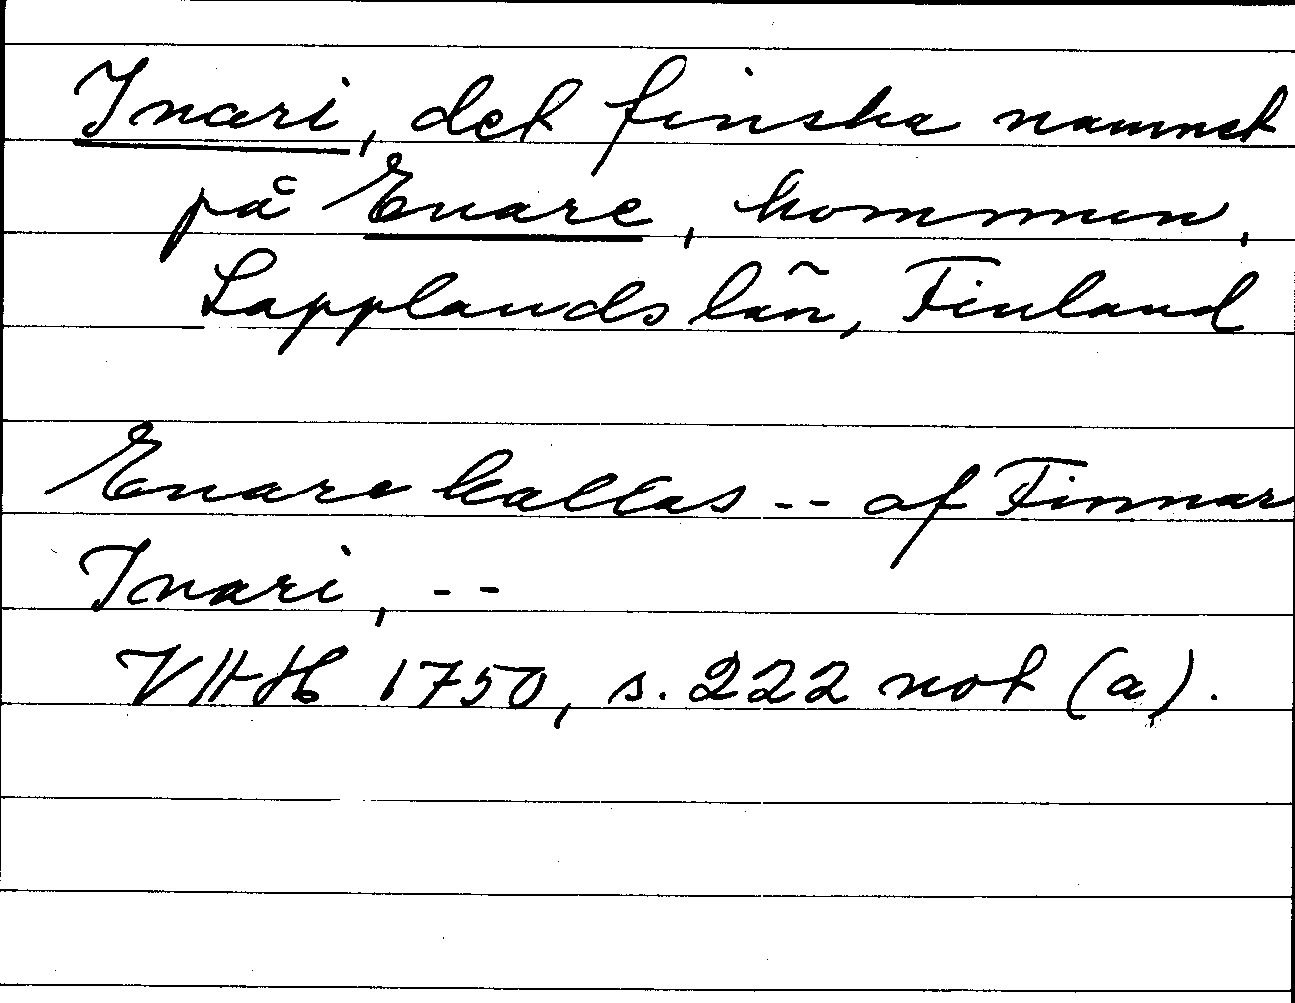 Inari, det finska namnet
på Enare, kommun,
Lapplands län, Finland
Enare kallas -- af Finnar
Inari, --
VHH 1750, s. 222 not (a).